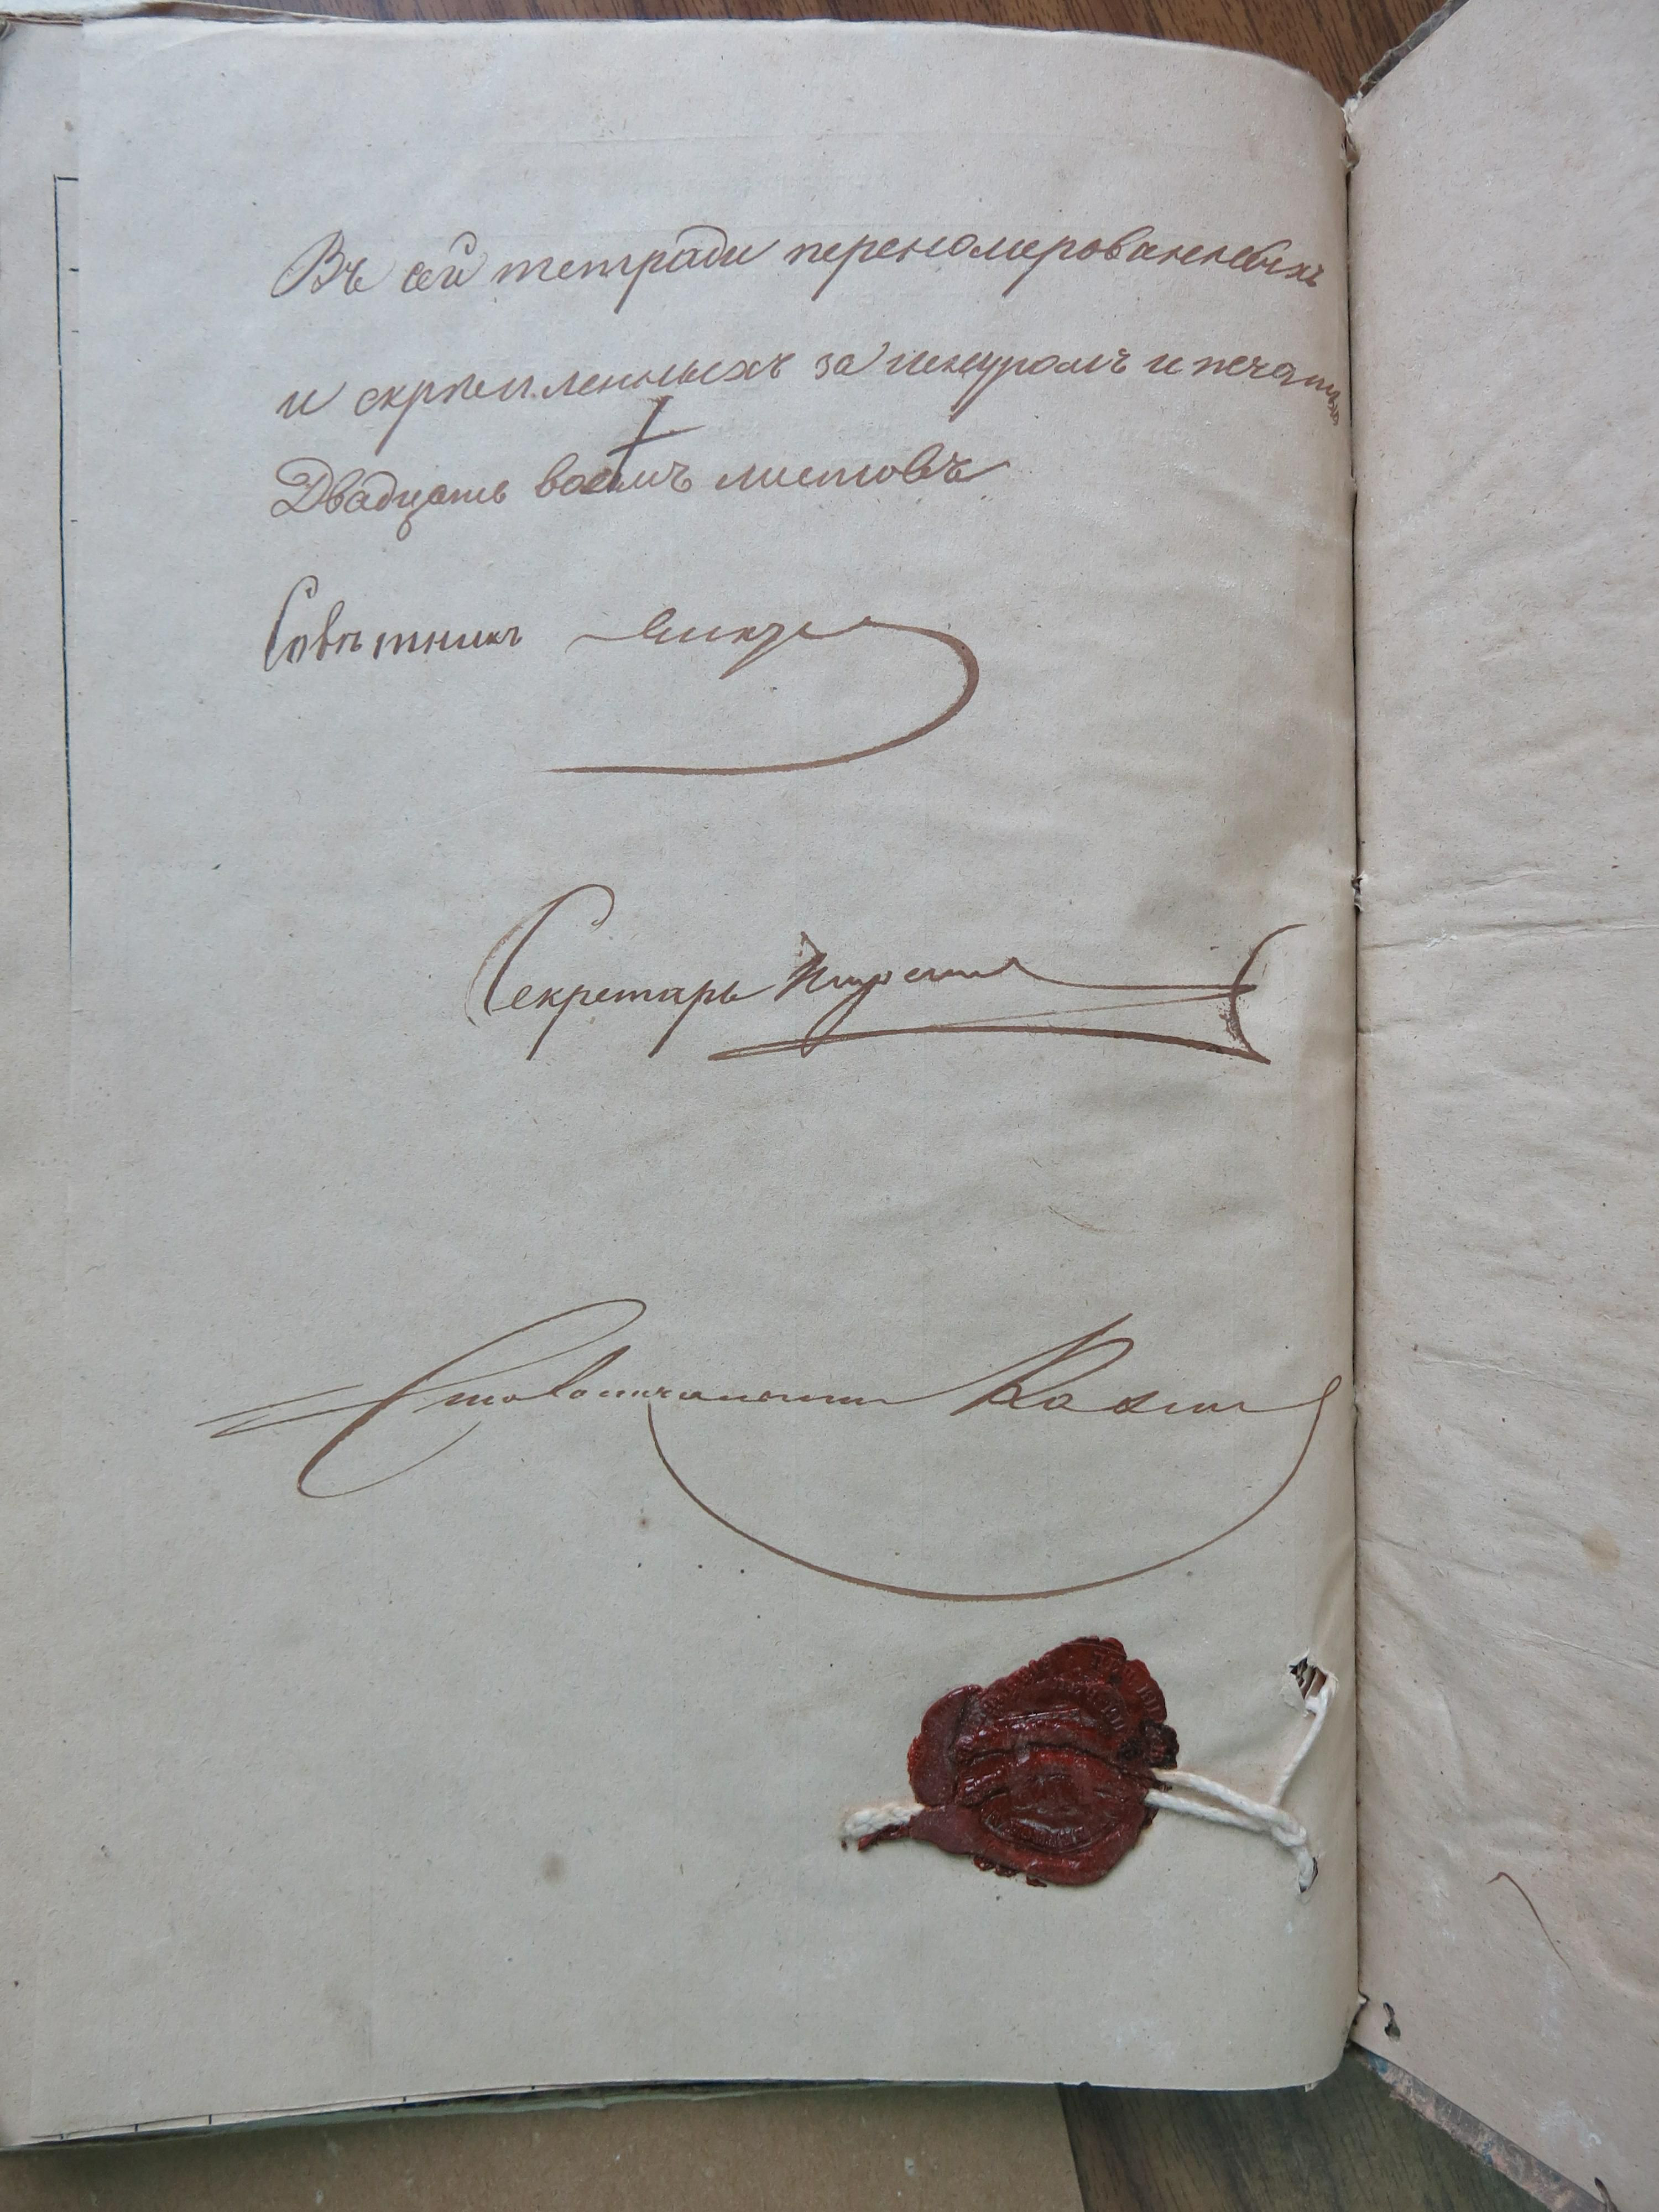 Въ сей тетради переномерованныхъ
и скрѣпленныхъ за шнуромъ и печатью
Двадцать восемь листовъ
Совѣтникъ
Секретарь
Столоначальникъ